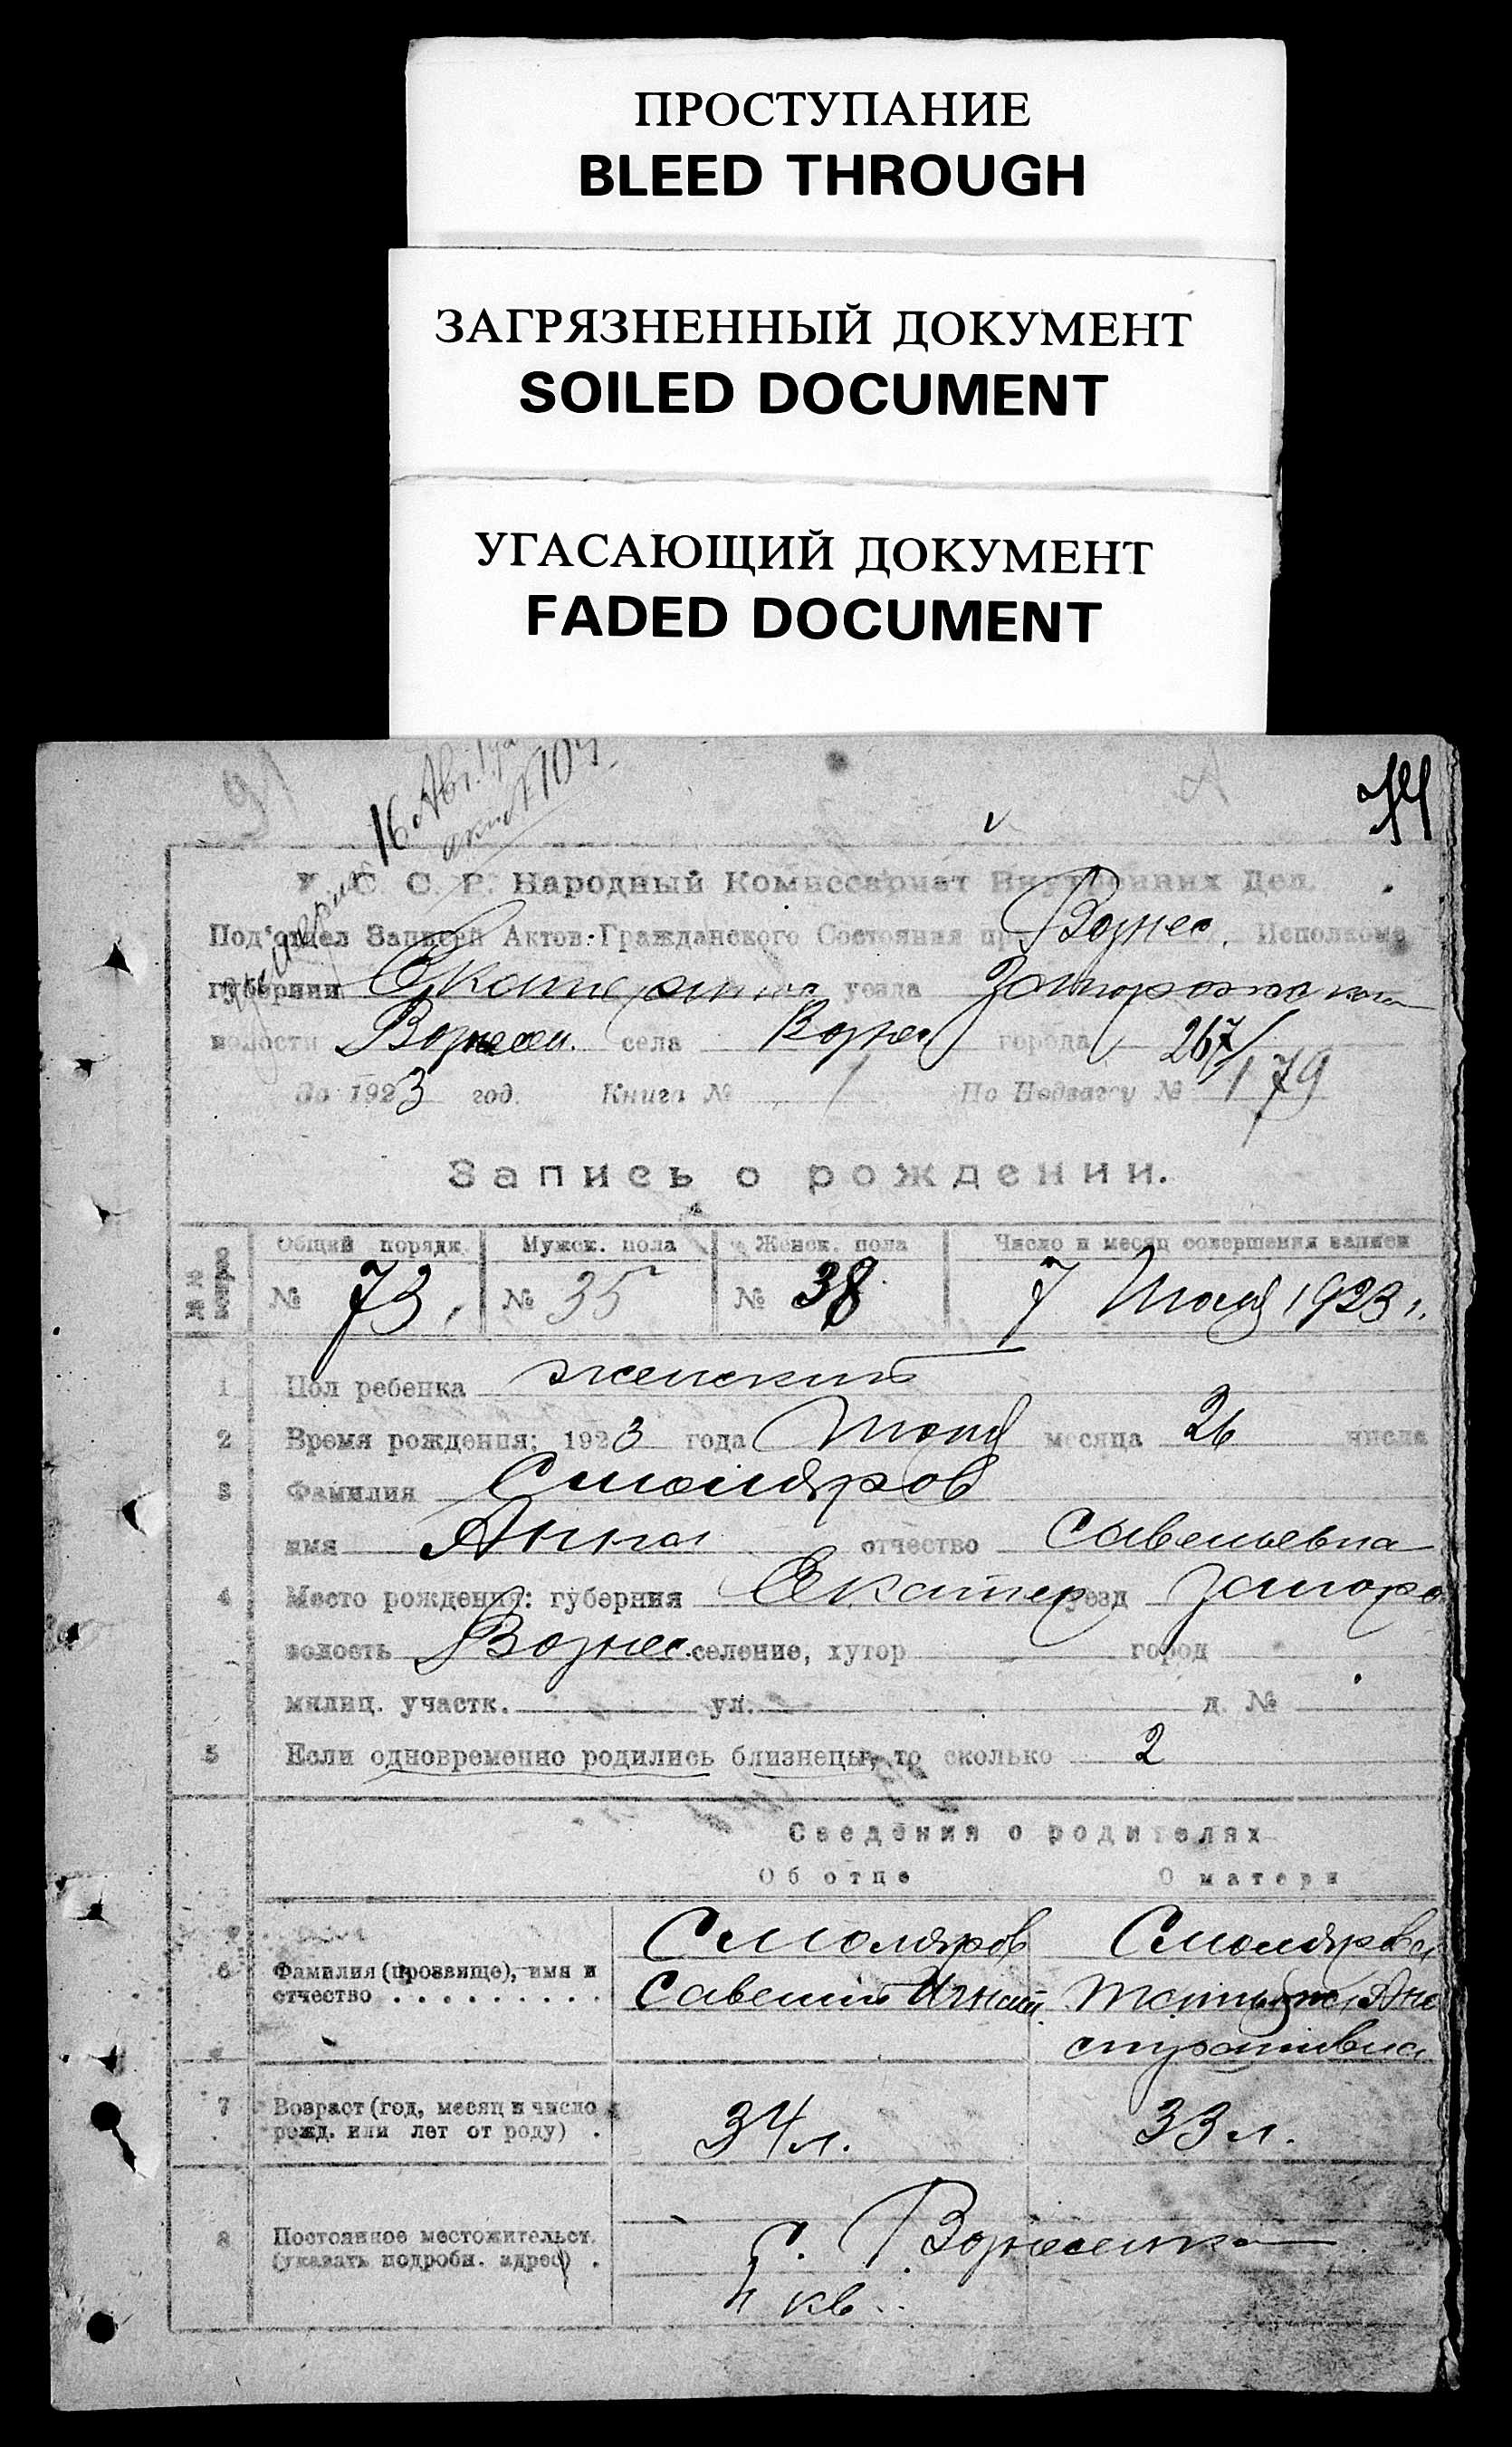 ПРОСТУПАНИЕ
BLEED THROUGH
ЗАГРЯЗНЕННЫЙ ДОКУМЕНТ
SOILED DOCUMENT
УГАСАЮЩИЙ ДОКУМЕНТ
FADED DOCUMENT
16 Авг.
У. С. С. Р. Народный Комиссариат Внутренних Дел.
Под'отдел Записей Актов Гражданского Состояния при Вознес. Исполкоме
губернии Екатерин уезда Запорожского
волости Вознесен. села Вознес города 267/
За 1923 год. Книга № 1 По Подвагсу № 179
Запись о рождении.
Общий порядк. Мужск. пола Женск. пола Число и месяц совершения записи
№ 73. № 35 № 38 7 1923 г.
1 Пол ребенка женский
2 Время рождения: 1923 года месяца 26 числа
3 Фамилия Смоляров
имя Анна отчество Савельевна
4 Место рождения: губерния Екатер уезд Запоро
волость Вознес. селение, хутор город
милиц. участк. ул. д. №
5 Если одновременно родились близнецы, то сколько 2
Сведения о родителях
Об отце О матери
Смоляров Смолярова
6 Фамилия (прозвище), имя и отчество Савелий Игнат.
7 Возраст (год, месяц и число рожд. или лет от роду) 34 л. 33 л.
8 Постоянное местожительст. (указать подробн. адрес) с. Вознесенка
4 кв.